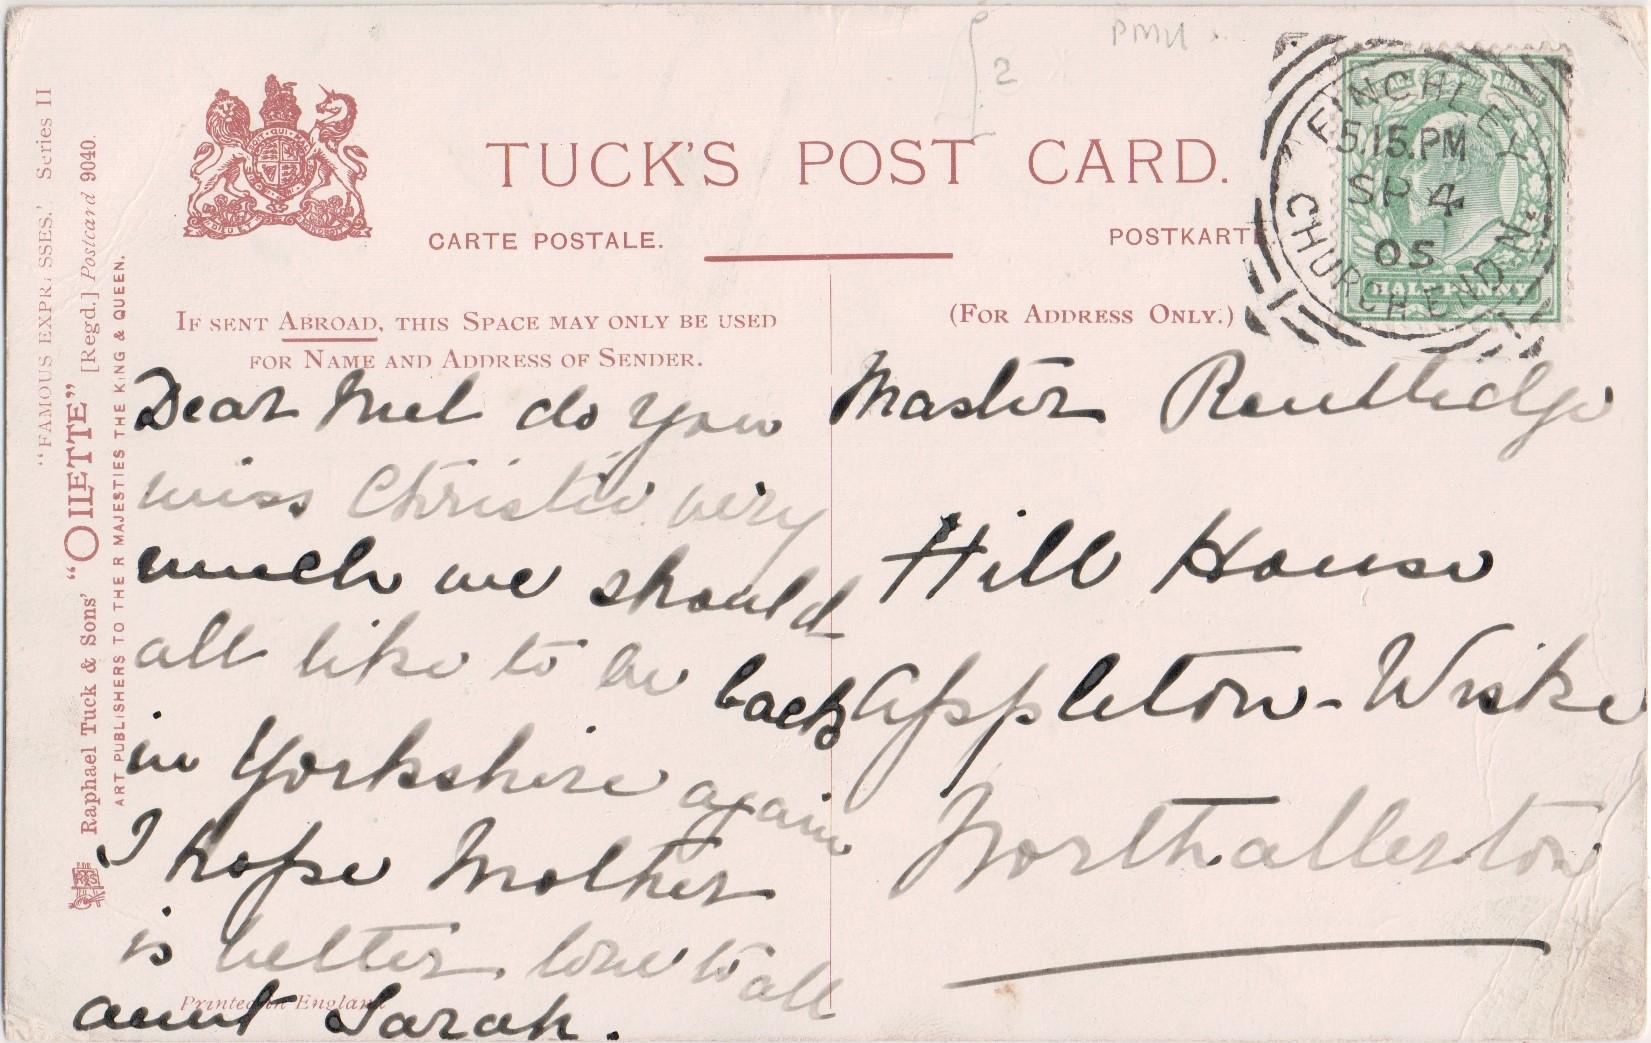 PMH
2
TUCK'S POST CARD.
CARTE POSTALE.
POSTKARTE
FINCHLEY
5.15.PM
SP 4
05
CHURCH END. N.
HALFPENNY
IF SENT ABROAD, THIS SPACE MAY ONLY BE USED
FOR NAME AND ADDRESS OF SENDER.
(FOR ADDRESS ONLY.)
"FAMOUS EXPRESSES." Series II
Raphael Tuck & Sons' "OILETTE" [Regd.] Postcard 9040.
ART PUBLISHERS TO THEIR MAJESTIES THE KING & QUEEN.
Dear Mel do you
miss Christie very
much we should
all like to be back
in Yorkshire again
I hope Mother
is better. love to all
aunt Sarah.
Printed in England
Master Routledge
Hill House
Appleton-Wiske
Northallerton